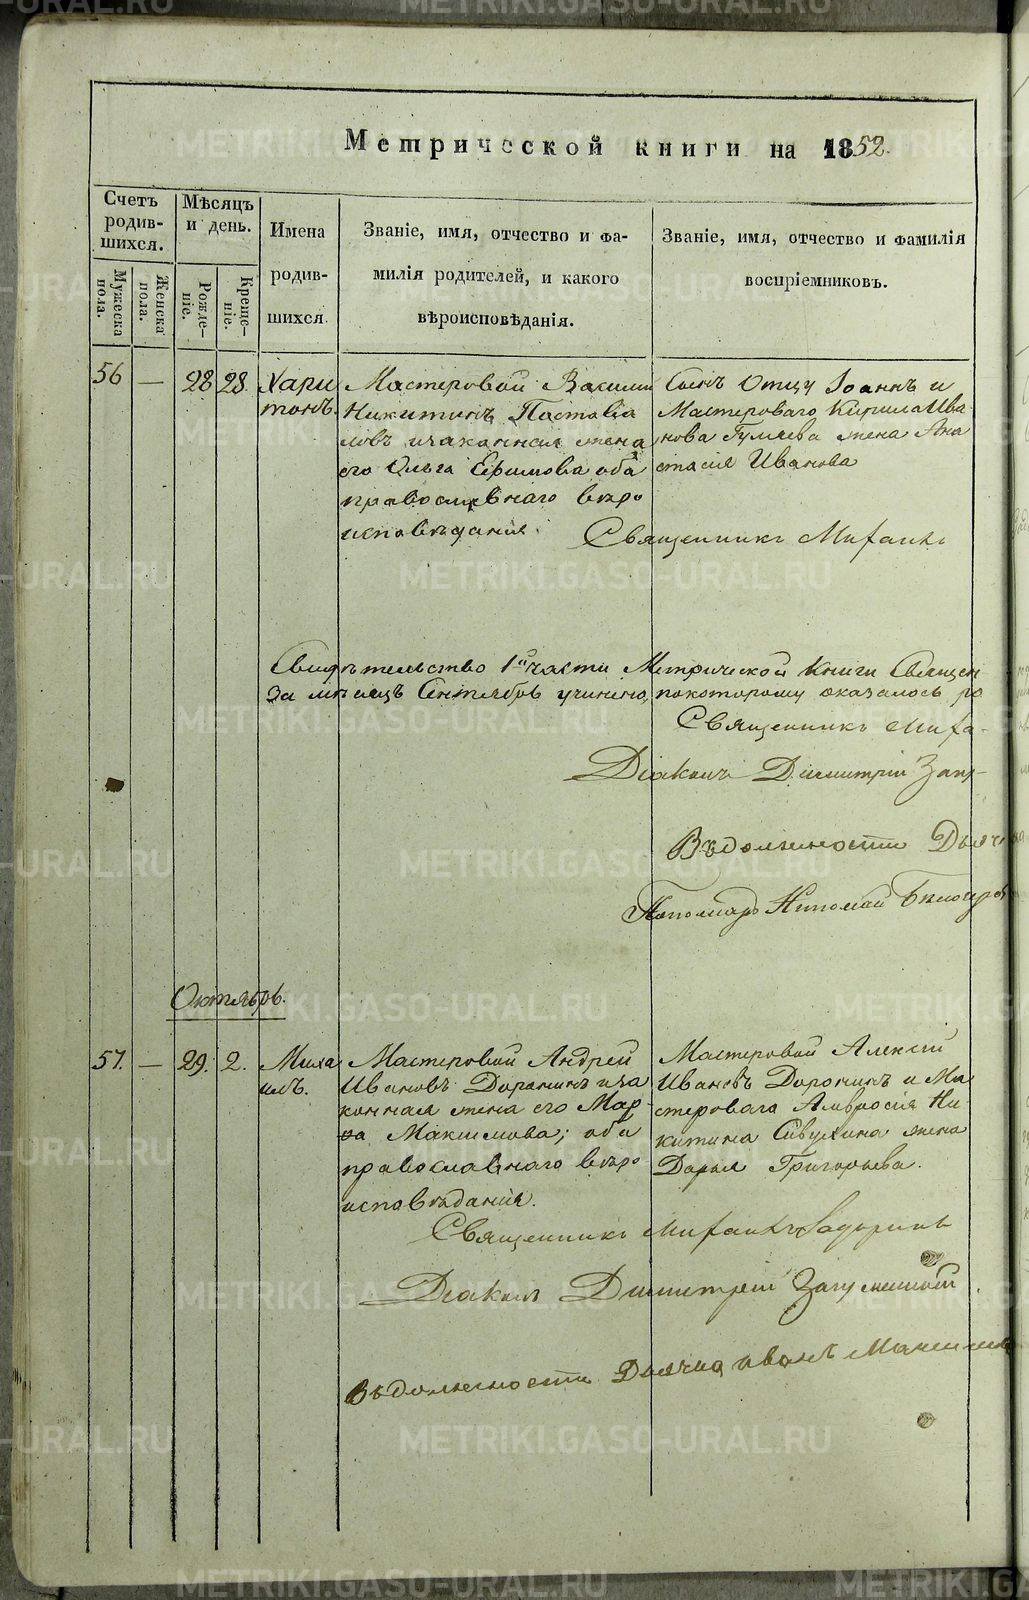 Метрической книги на 1852.
Счетъ родив-шихся.
Мѣсяцъ и день.
Имена родив-шихся.
Званіе, имя, отчество и фа-
милія родителей, и какого
вѣроисповѣданія.
Званіе, имя, отчество и фамилія
воспріемниковъ.
Мужеска пола.
Женска пола.
Рожде-ніе.
Креще-ніе.
56 — 28 28. Хари
тонъ.
Мастеровой Василій
Никитинъ
ловъ и законная жена
его Ольга Ефимова оба
православнаго вѣро
исповѣданія.
Сынъ Отцу Іоаннъ и
Мастероваго Кирила Ива
нова Гуляева жена Ана
стасія Иванова
Священникъ Михаилъ
Свидѣтельство 1й части Метрической Книги Священ
За мѣсяцъ Сентябрь учинено, по которому оказалось ро
Священникъ Миха-
Діаконъ Димитрій Заг
Въ должности Дьяч
Пономарь Николай
Октябрь.
57. — 29. 2. Миха
илъ.
Мастеровой Андрей
Ивановъ Доронинъ и за
конная жена его Мар-
ѳа Максимова; оба
православнаго вѣро
исповѣданія.
Мастеровой Алексій
Ивановъ Доронинъ и Ма
стероваго Амвросія Ни-
китина Сивухина жена
Дарья Григорьева.
Священникъ Михаилъ Задоринъ
Діаконъ Димитрій
Въ должности Дьячка Иванъ
METRIKI.GASO-URAL.RU